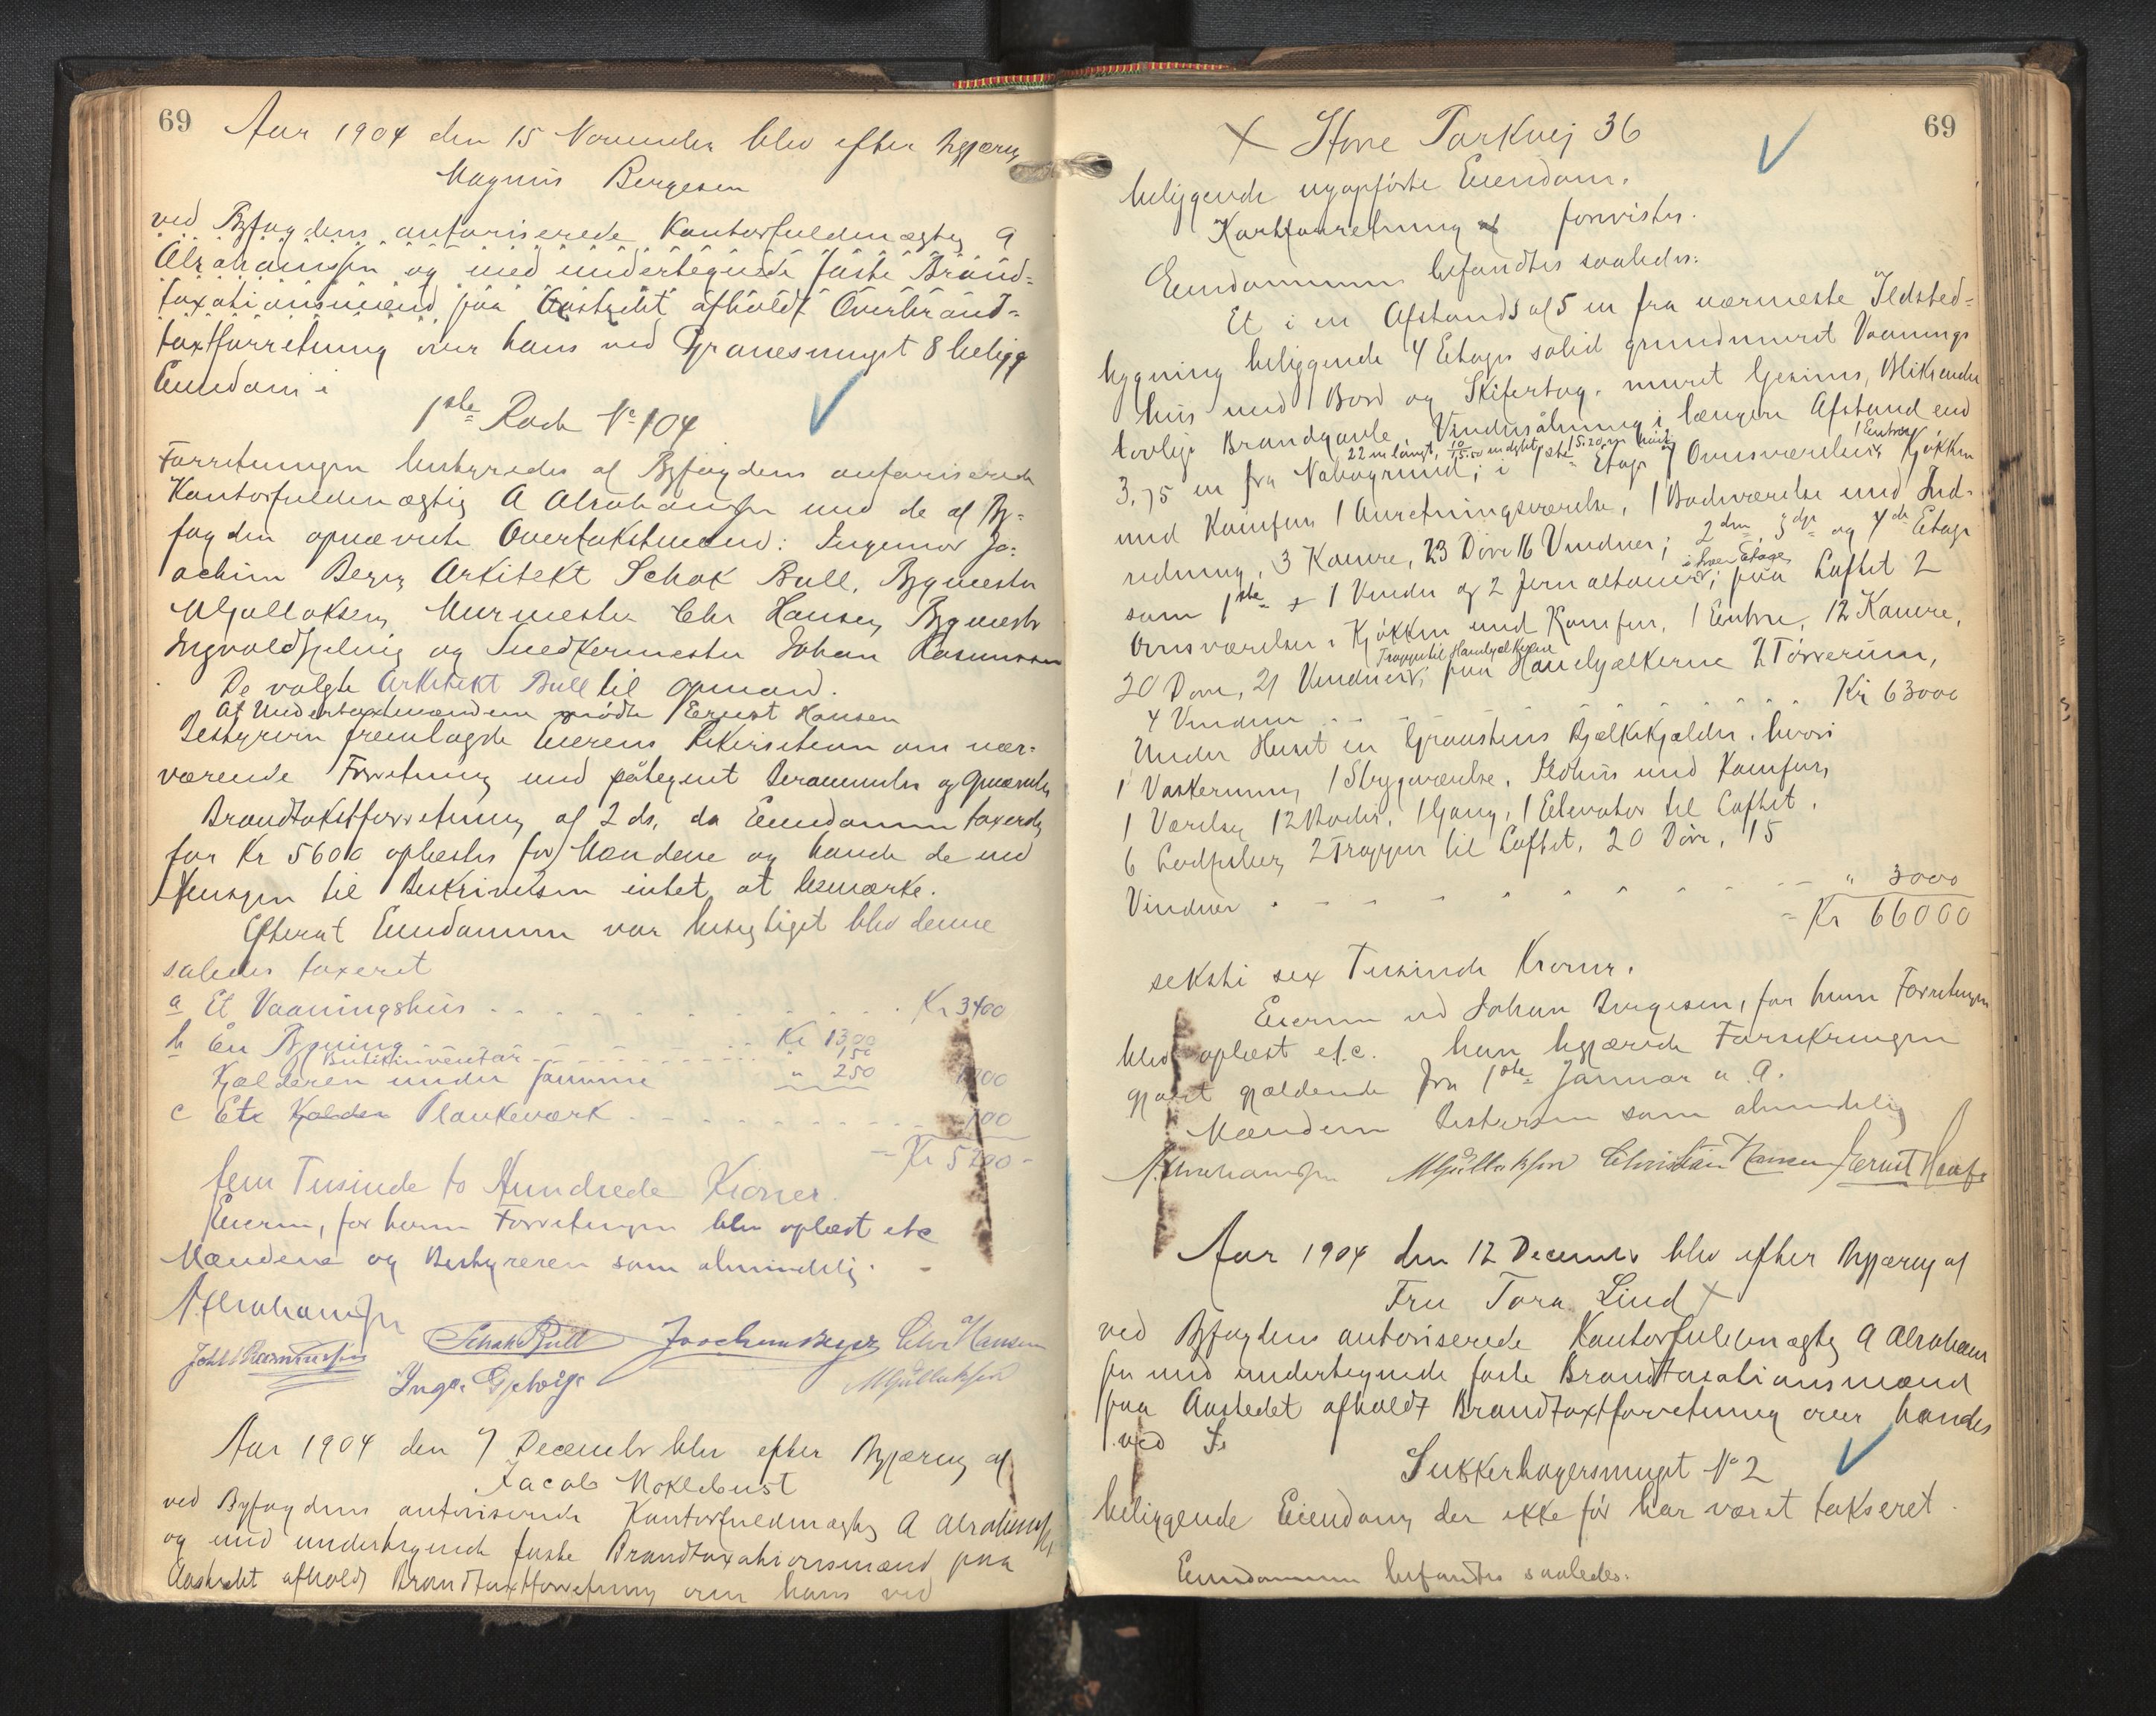 69
Aar 1904 den 15 November blev efter Begjæring
Magnus Bergesen
ved Byfogdens autoriserede Kontorfuldmægtig A
Abrahamsen og med undertegnede faste Brand-
taxationsmænd paa Aastedet afholdt Overbrand-
taxtforretning over hans ved Granesmuget 8 beligg
Eiendom i
1ste Rode No 104
Forretningen bestyredes af Byfogdens autoriserede
Kontorfuldmægtig A Abrahamsen med de af By-
fogden opnævnte Overtakstmænd: Ingeniør Jo-
achim Berg, Arkitekt Schak Bull, Bygmester
M Gulleksen, Murmester Chr Hansen, Bygmester
Ingvald og Snedkermester Johan Rasmussen
De valgte Arkitekt Bull til Opmand.
Af Undertaxtmændene mødte Ernst Hansen
Bestyreren fremlagde Eierens Rekvisition om nær-
værende Forretning med påtegnet Berammelse og Opnævnelse
Brandtakstforretning af 2 ds, da Eiendommen taxeredes
for Kr 5600 oplæstes for Mændene og havde de med
Hensyn til Beskrivelsen intet at bemærke.
Efterat Eiendommen var besigtiget blev denne
saaledes taxeret
a Et Vaaningshus . . . Kr 3400
b En Bygning . . . Kr 1300
Butikinventar . . . " 150
Kjælderen under samme " 250 1700
c Et Kjælder Plankeværk . . . 100
Kr 5200
fem Tusinde to Hundrede Kroner.
Eieren, for hvem Forretningen blev oplæst etc
Mændene og Bestyreren som almindelig.
A. Abrahamsen
Schak Bull Joachim Berg Chr Hansen
Joh. Rasmussen
Ingv. M Gulleksen
Aar 1904 den 7 December blev efter Begjæring af
Jacob Moklebust
ved Byfogdens autoriserede Kontorfuldmægtig A Abrahamsen
og med undertegnede faste Brandtaxationsmænd paa
Aastedet afholdt Brandtaxtforretning over hans ved
69
X Store Parkvej 36
beliggende nyopførte Eiendom.
Kartforretning forevistes.
Eiendommen befandtes saaledes:
Et i en Afstand af 5 m fra nærmeste Ildsted-
bygning beliggende 4 Etages solid grundmuret Vaanings
hus med Bord og Skifertag, muret Gesims,
lovlige Brandgavle, i længere Afstand end
22 m langt, 1 Entre
3,75 m fra Nabogrund; i 1ste Etage 7 Ovnsværelser, Kjøkken
med Komfur, 1 Anretningsværelse, 1 Badeværelse med Ind-
redning, 3 Kamre, 23 Døre 16 Vinduer; 2den, 3die og 4de Etage
i hver Etage
som 1ste + 1 Vindu og 2 Jernaltaner; paa Loftet 2
Ovnsværelser, Kjøkken med Komfur, 1 Entre, 12 Kamre,
Trappe til Hanebjælkerne
20 Døre, 21 Vinduer; paa Hanebjælkerne 2 Tørrerum,
4 Vinduer . . . Kr 63000
Under Huset en Graastens Bjælkekjælder, hvori
1 Vaskerum, 1 Strygeværelse, Ildhus med Komfur,
1 Værelse, 12 Boder, 1 Gang, 1 Elevator til Loftet,
6 2 Trapper til Loftet, 20 Døre, 15
Vinduer . . . " 3000
= Kr 66000
seksti sex Tusinde Kroner.
Eieren ved Johan Bergesen, for hvem Forretningen
blev oplæst etc. han begjærede Forsikringen
gjort gjældende fra 1ste Januar n. A.
Mændene Bestyreren som almindelig
A. Abrahamsen M Gulleksen Christian Hansen Ernst Hansen
Aar 1904 den 12 December blev efter Begjæring af
Fru Tora Lind X
ved Byfogdens autoriserede Kontorfuldmægtig A Abraham
sen med undertegnede faste Brandtaxationsmænd
paa Aastedet afholdt Brandtaxtforretning over hendes
ved
Sukkerhusersmuget No 2
beliggende Eiendom, der ikke før har været takseret.
Eiendommen befandtes saaledes: